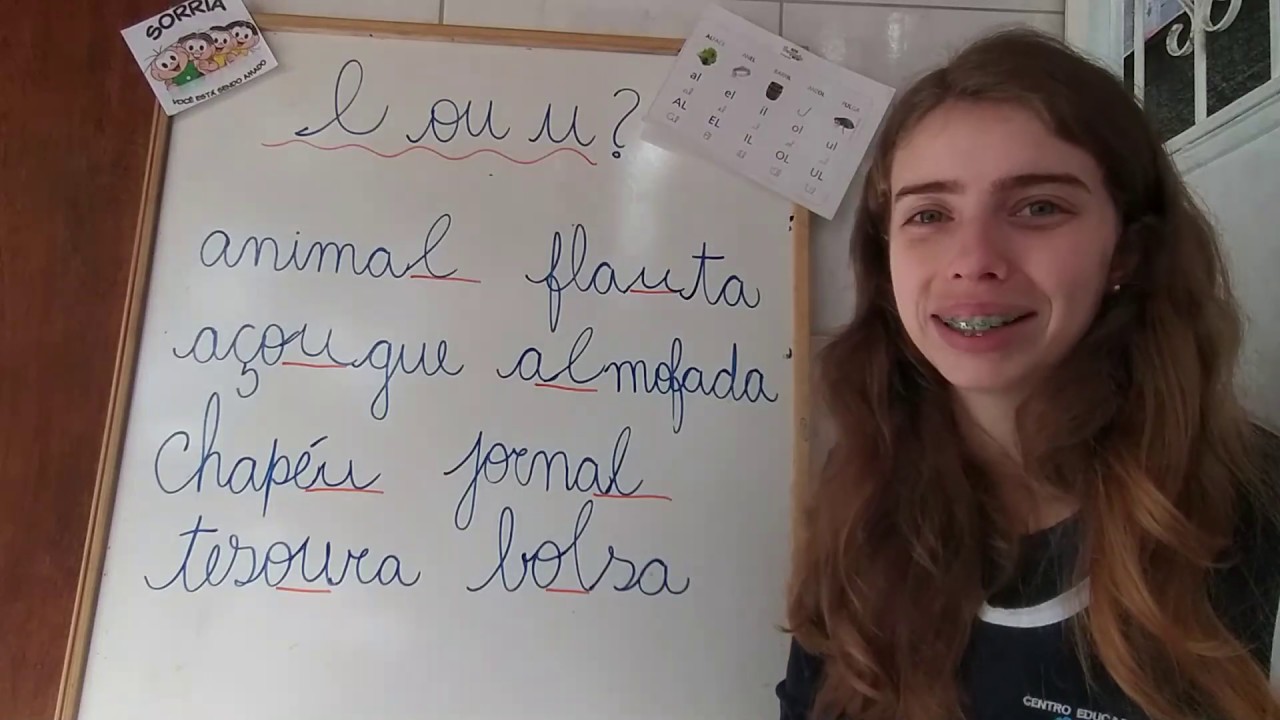 SORRIA
VOCÊ ESTÁ SENDO AMADO
l ou u?
ANEL
PULGA
al el il ol ul
AL EL IL OL UL
animal flauta
açougue almofada
chapéu jornal
tesoura bolsa
CENTRO EDUCA